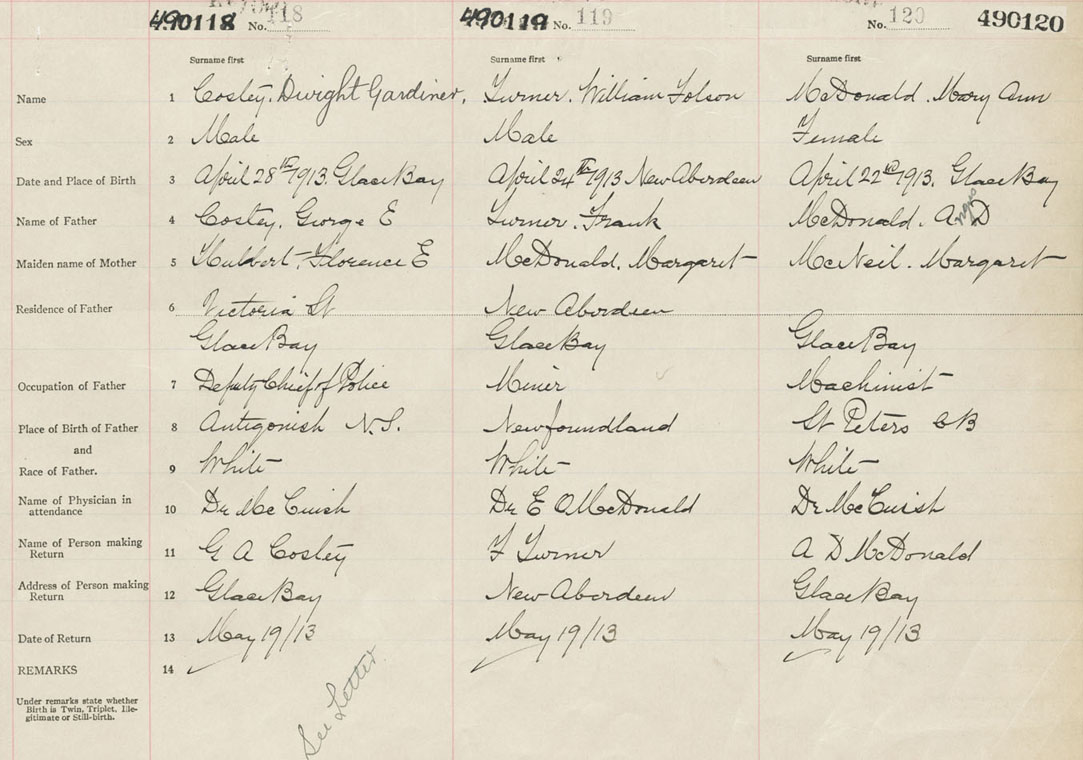 490118 No. 118 490119 No. 119 No. 120 490120
Surname first Surname first Surname first
Name 1 Cosley. Dwight Gardiner, Turner. William Tolson McDonald. Mary Ann
Sex 2 Male Male Female
Date and Place of Birth 3 April 28th 1913. Glace Bay April 24th 1913 New Aberdeen April 22nd 1913. Glace Bay
Name of Father 4 Cosley. George E Turner. Frank McDonald. Angus D
Maiden name of Mother 5 Hulbert, Florence E McDonald, Margaret McNeil. Margaret
Residence of Father 6 Victoria St New Aberdeen
Glace Bay Glace Bay Glace Bay
Occupation of Father 7 Deputy Chief of Police Miner Machinist
Place of Birth of Father 8 Antigonish N.S. Newfoundland St Peters CB
and
Race of Father. 9 White White White
Name of Physician in
attendance 10 Dr McCuish Dr E O McDonald Dr McCuish
Name of Person making
Return 11 G A Cosley F Turner A D McDonald
Address of Person making
Return 12 Glace Bay New Aberdeen Glace Bay
Date of Return 13 May 19/13 May 19/13 May 19/13
REMARKS 14
Under remarks state whether
Birth is Twin, Triplet, Ille-
gitimate or Still-birth.
See Letter